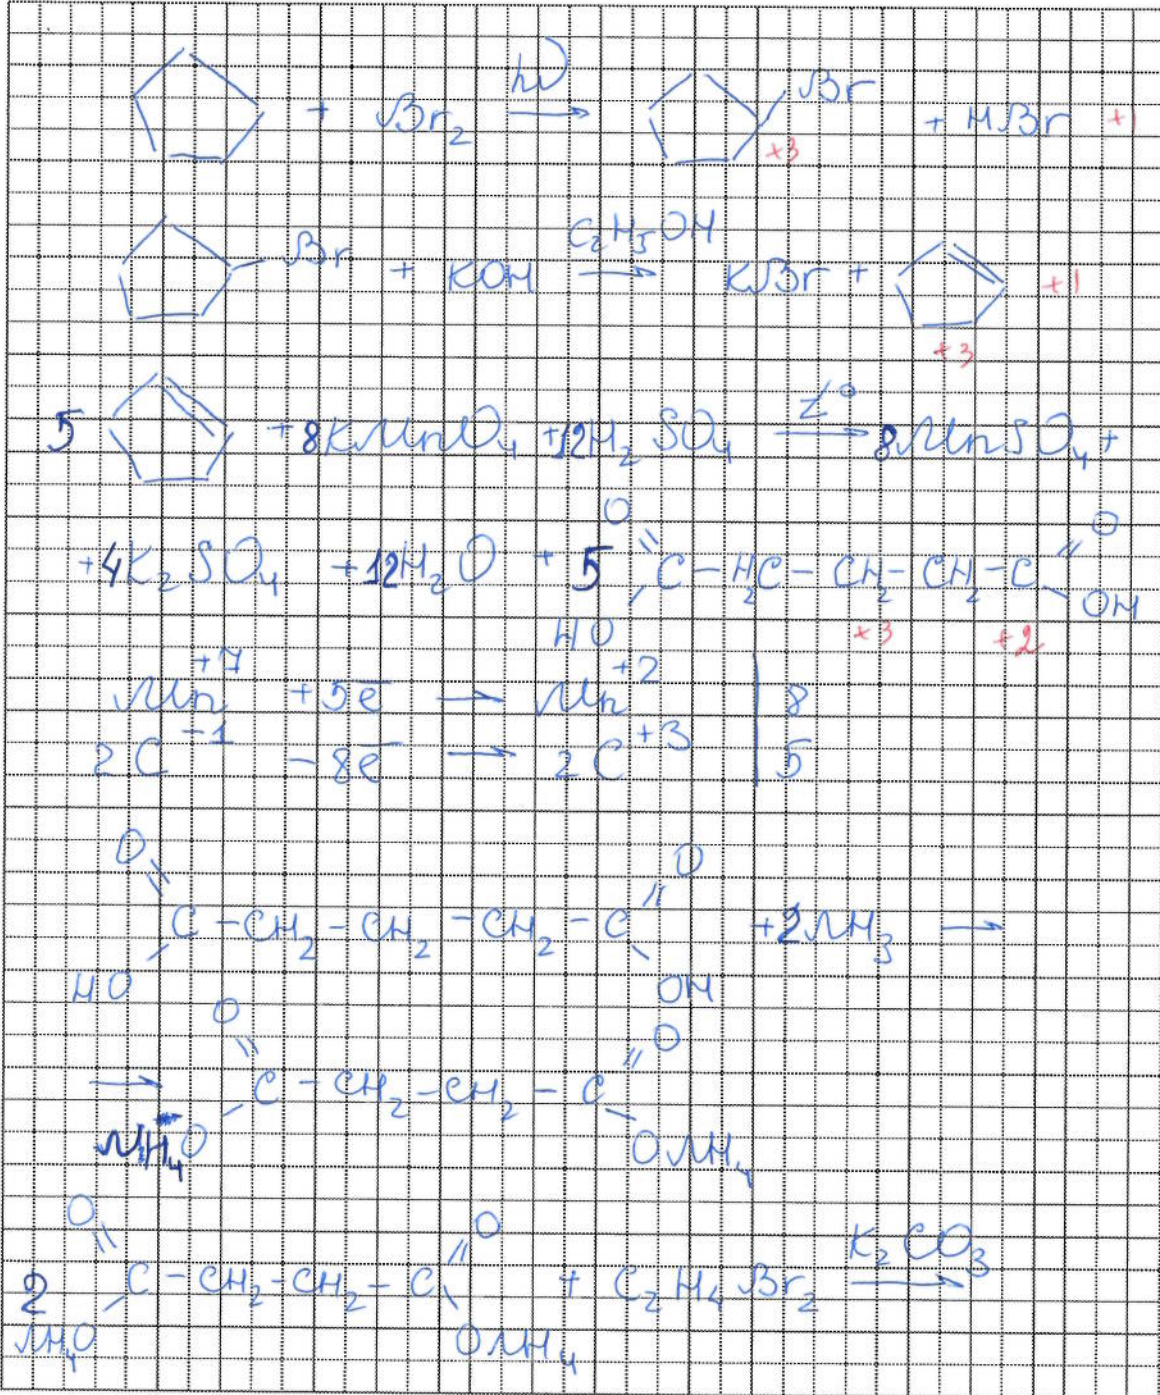 + Br₂ hν → Br + HBr +1
+3
Br + KOH C₂H₅OH → KBr + +1
+3
5 + 8KMnO₄ + 12H₂SO₄ t° → 8MnSO₄ +
+ 4K₂SO₄ + 12H₂O + 5 O=C(HO) – H₂C – CH₂ – CH₂ – C(=O)OH
+3 +2
Mn⁺⁷ + 5e⁻ → Mn⁺² | 8
2C⁻¹ – 8e⁻ → 2C⁺³ | 5
O=C(HO) – CH₂ – CH₂ – CH₂ – C(=O)OH + 2NH₃ →
→ O=C(NH₄O) – CH₂ – CH₂ – C(=O)ONH₄
2 O=C(NH₄O) – CH₂ – CH₂ – C(=O)ONH₄ + C₂H₄Br₂ K₂CO₃ →